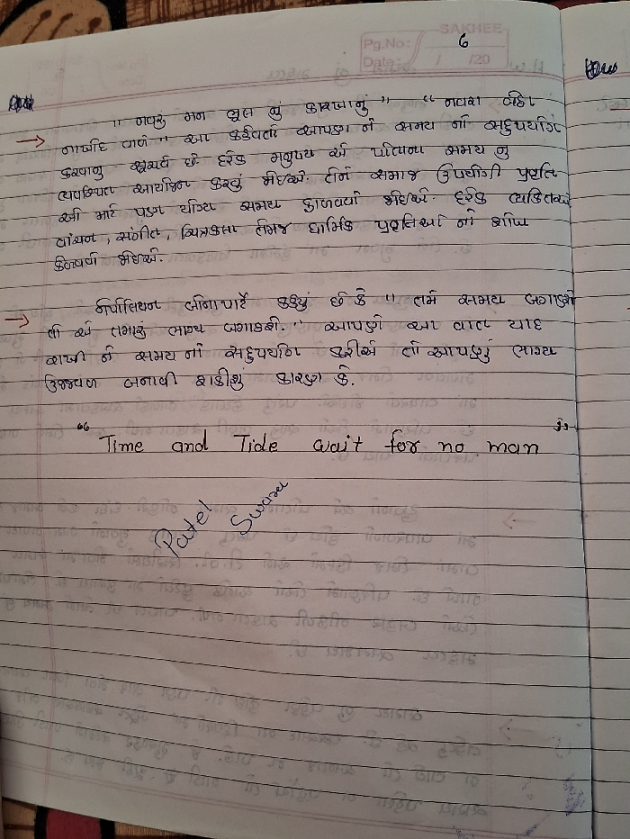 SAKHEE
Pg.No: 6
Date: / /20
" નવરું મન ભુત નું કારખાનું " " નવરા બેઠા
→ નખ્ખોદ વાળે " આ કહેવતો આપણ ને સમય નો સદુપયોગ
કરવાનુ સૂચવે છે દરેક મનુષ્ય એ પોતાના સમય નુ
વ્યવસ્થિત આયોજન કરવું જોઈએ. તેને સમાજ ઉપયોગી પ્રવૃતિ
ઓ માટે પણ યોગ્ય સમય ફાળવવો જોઈએ. દરેક વ્યકિતએ
વાંચન, સંગીત, ચિત્રકલા તેમજ ધાર્મિક પ્રવૃતિઓ નો શોખ
કેળવવો જોઈએ.
→ નેપોલિયન બોનાપાર્ટે કહ્યું છે કે " તમે સમય બગાડશો
તો એ તમારું ભાગ્ય બગાડશે. " આપણે આ વાત યાદ
રાખી ને સમય નો સદુપયોગ કરીએ તો આપણું ભાગ્ય
ઉજ્જવળ બનાવી શકીશું કારણ કે.
" Time and Tide wait for no man "
Patel